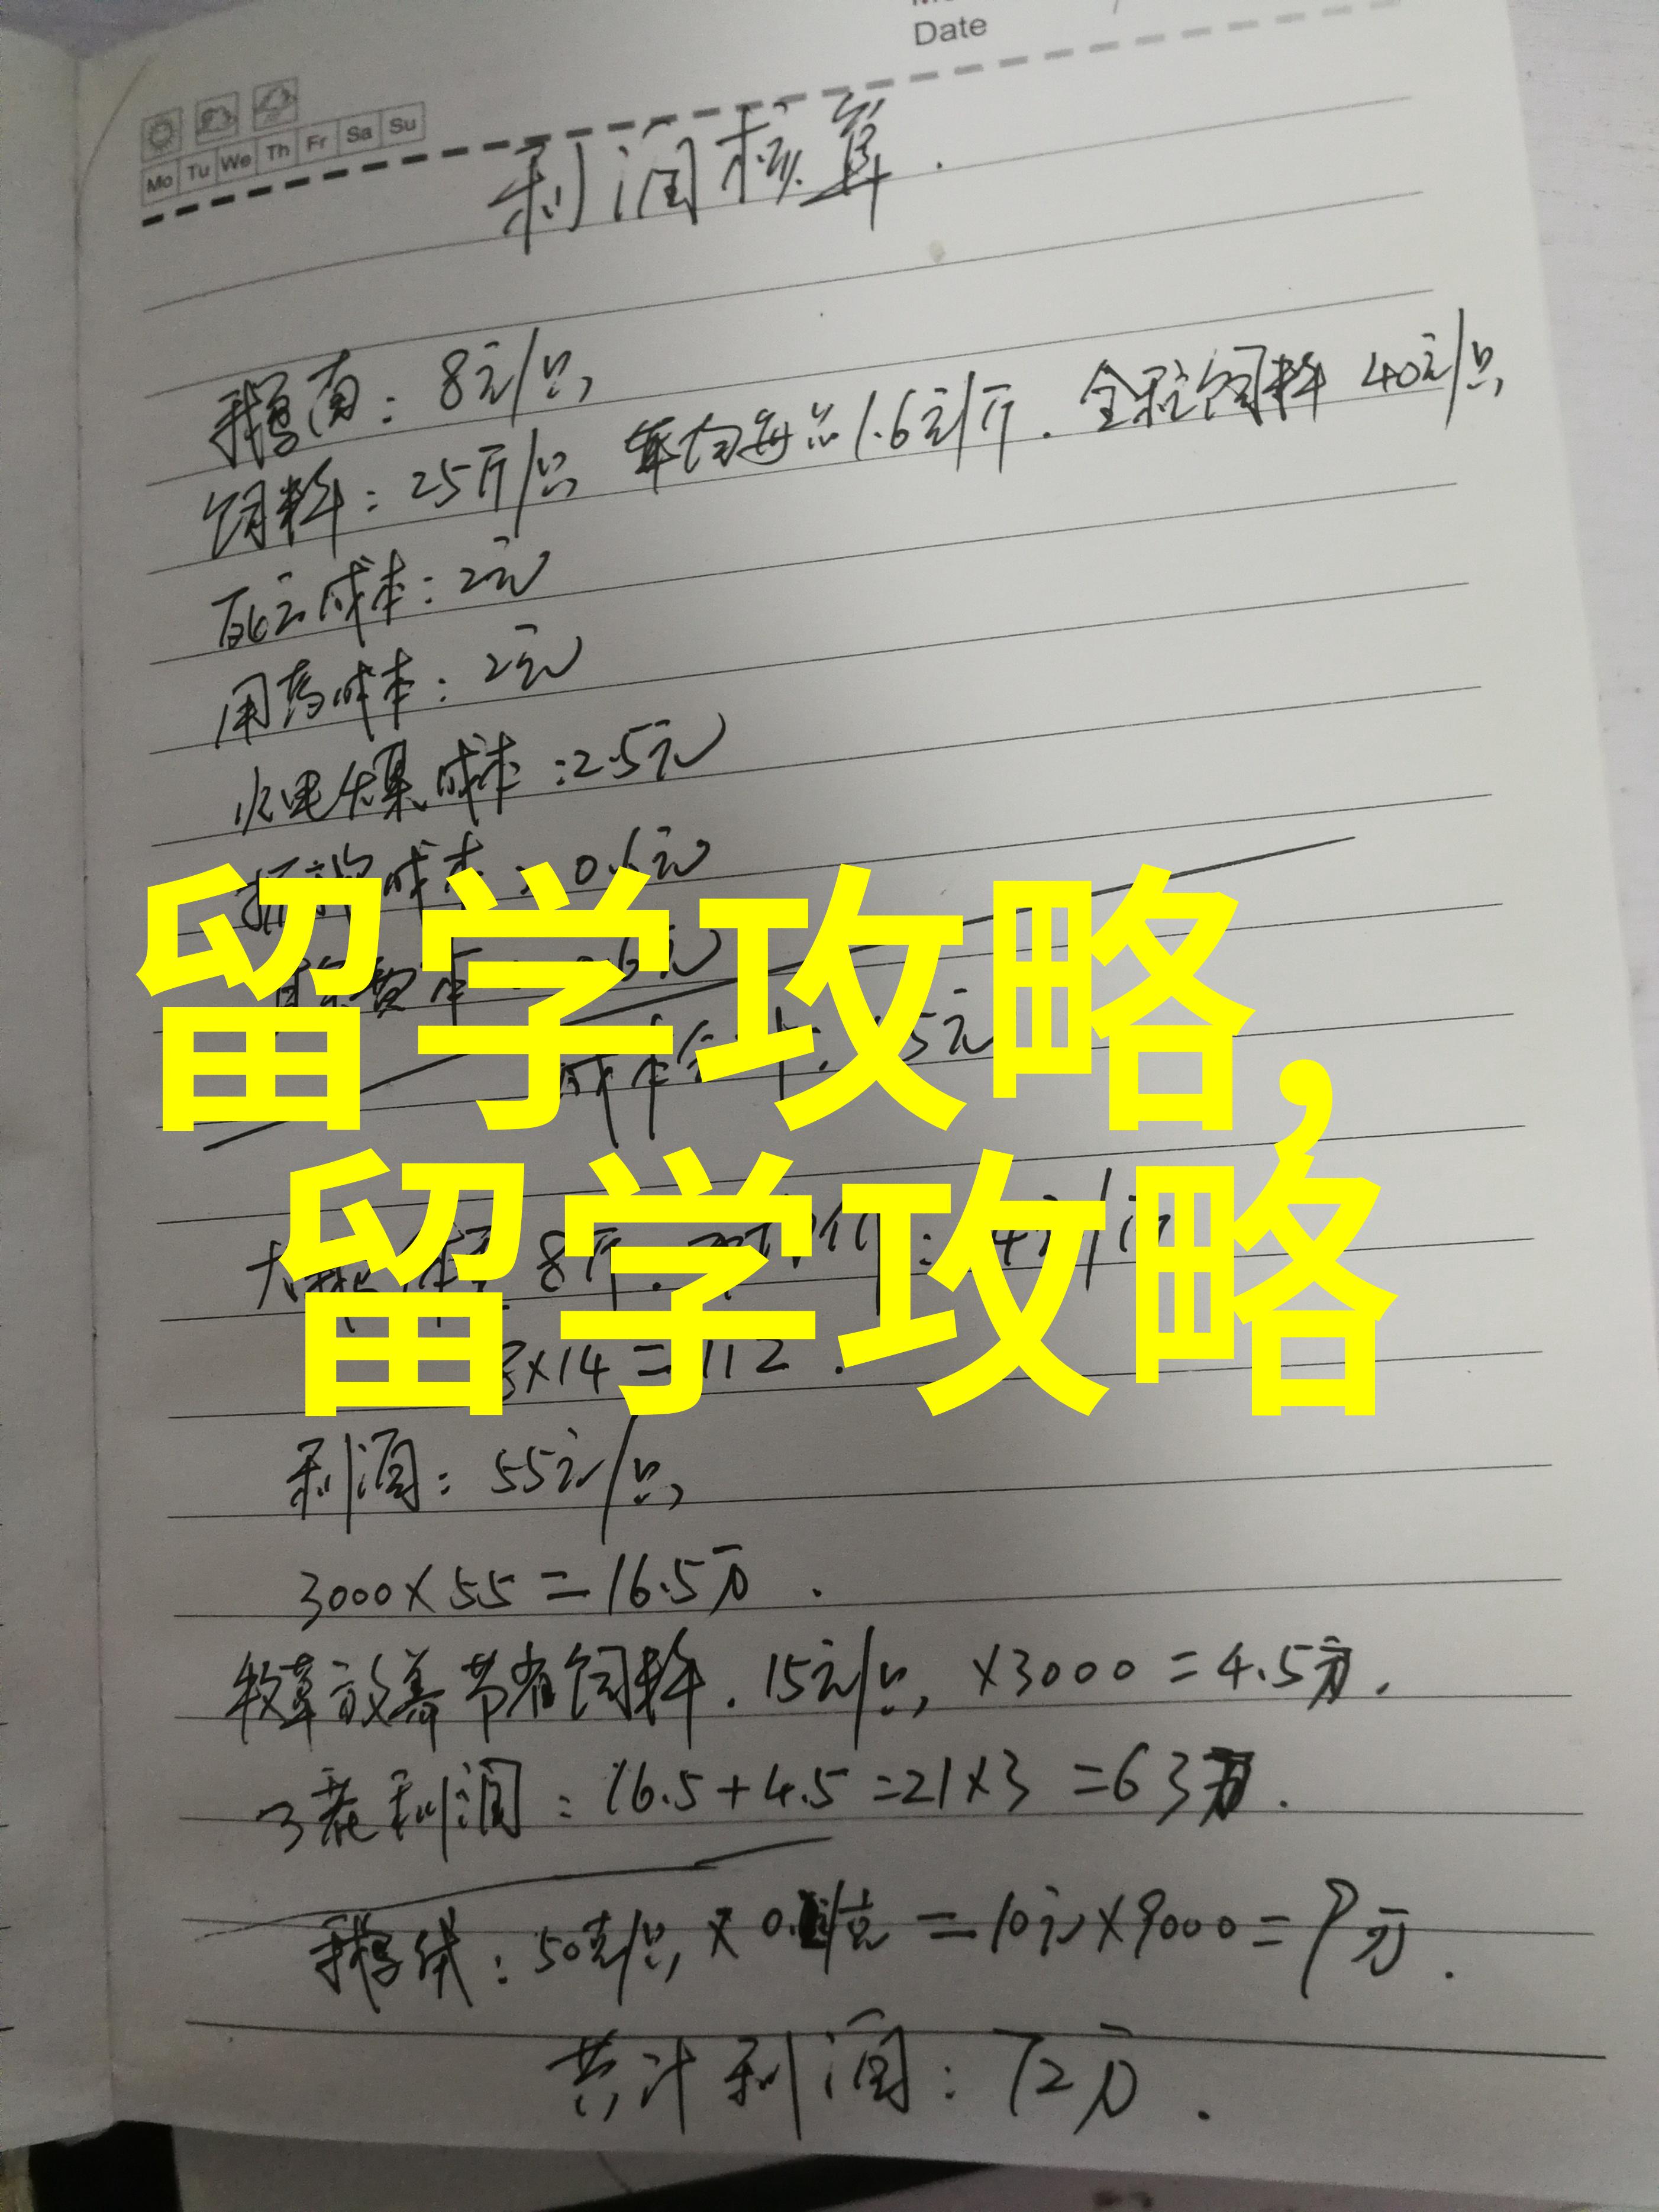 Date
Mo Tu We Th Fr Sa Su
利润核算.
鹅苗：8元/只
饲料：25斤/只 1.6元/斤. 全程饲料 40元/只
死亡成本：2元
用药成本：2元
水电煤成本：2.5元
成本：0.
留学攻略,
5元
留学攻略
8斤.
×14=112.
利润：55元/只
3000×55=16.5万.
牧草放养节省饲料. 15元/只 ×3000=4.5万.
3茬利润：16.5+4.5=21×3=63万.
鹅绒：50克/只 × =10元×9000=9万.
共计利润：72万.